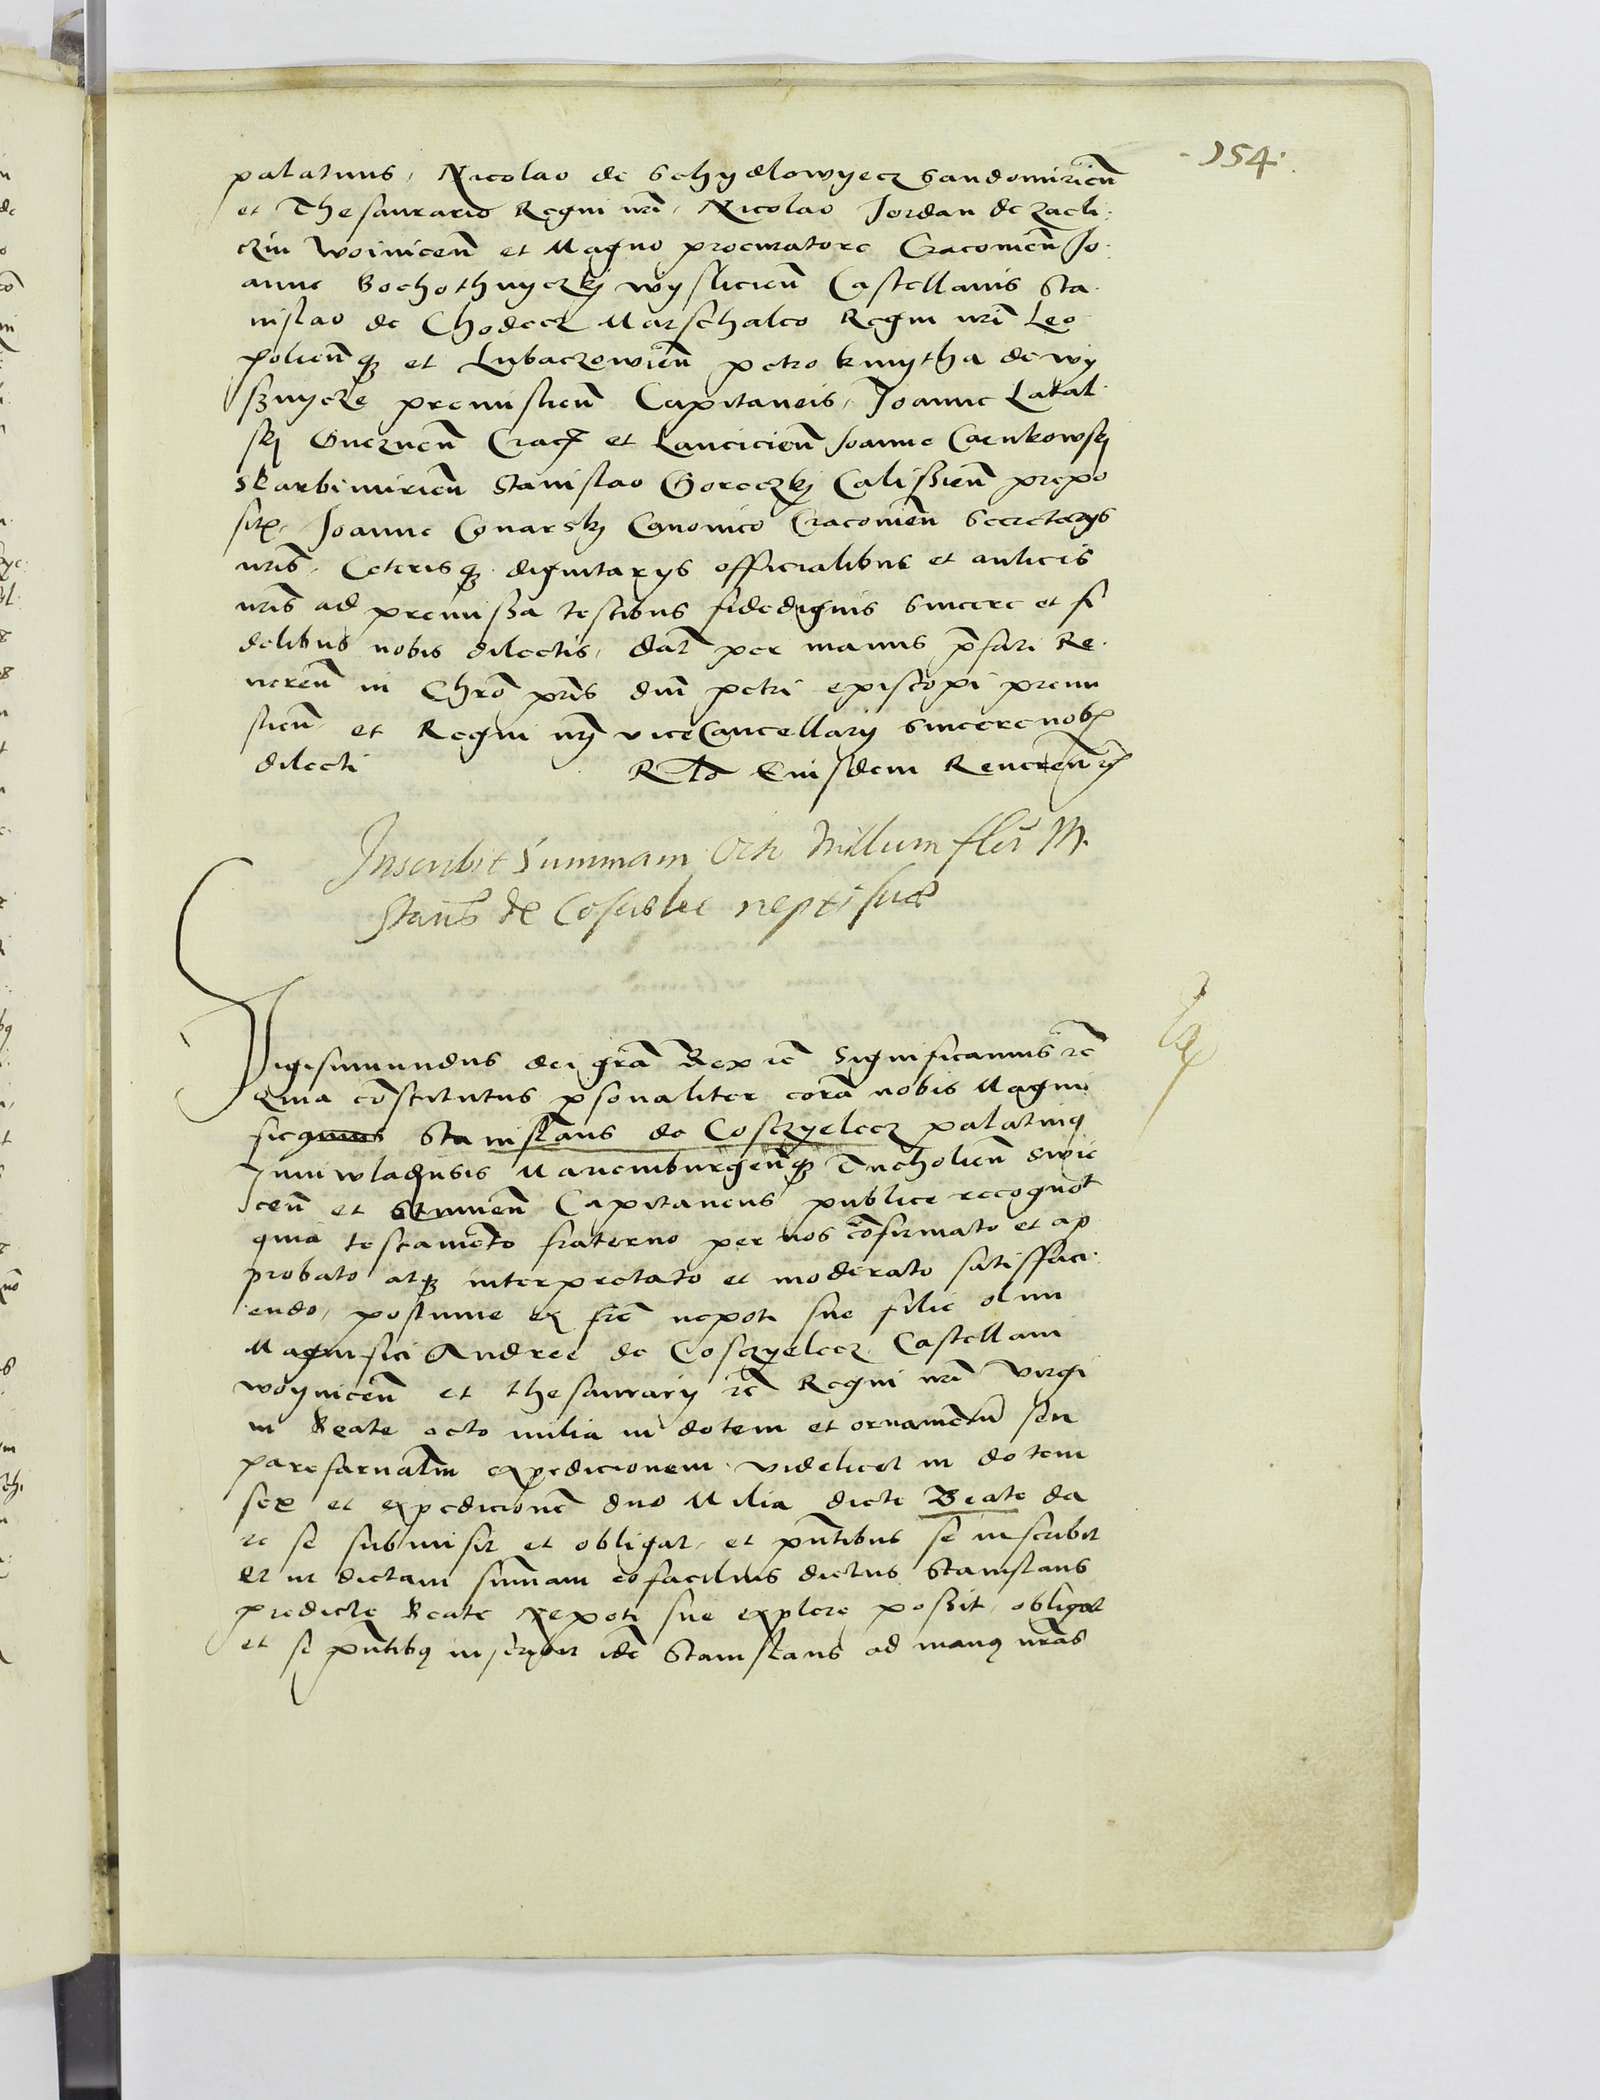 ·154·
palatinis, Nicolao de Schydlowyecz Sandomirien̄
et Thesaurario Regni nr̄i, Nicolao Jordan de Zacli
czin Woinicen̄ et Magno procuratore Cracovien̄ Jo
anne Bochothnyczkj wyslicien̄ Castellanis Sta
nislao de Chodecz Marschalco Regni nr̄i Leo
polien̄qȝ et Lubaczowien̄ petro kmytha de wy
sznycze premislien̄ Capitaneis, Joanne Latal
skj Gneznen̄ Crac̄ et Lancicien̄ Joanne Carnkowskj
Skarbimirien̄ Stanislao Goreczkj Calissien̄ prepo
sit, Joanne Conarskj Canonico Cracovien̄ Secretarijs
nr̄is, Ceterisqȝ dignitarijs officialibus et aulicis
nr̄is ad premissa testibus fidedignis Sincere et fi
delibus nobis dilectis, dat̄ per manus p̄fati Re
veren̄ in Chr̄o pr̄is dn̄i petri episcopi premi
slien̄ et Regni nr̄j viceCancellarij Sincere nob
dilecti Rlō Eiusdem Reveren̄
Inscribit Summam Octo Millium flor̄ M.
Stan̄s de Coscielec nepti suae
Sigismundus dei grā Rex ec̄ Significamus ec̄
Quia cōstitutus psonaliter corā nobis Magni
ficquus Stanislaus de Cosczyelecz palatinq
Juniwladensis Mariemburgen̄qȝ Tucholien̄ Swie
cen̄ et Capitaneus publice recognot
quia testamēto fraterno per nos cōfirmato et ap
probato atqȝ interpretato et moderato satisfaci
endo, postume ex fr̄e nepoti sue filie olim
Magnifici Andree de Cosczyelecz Castellani
woynicen̄ et thesaurarij ec̄ Regni nr̄i Virgi
ni Beate octo milia in dotem et ornamētū seu
parafarnalem expedicionem videlicet in dotem
sex et expedicionē duo Milia dicte Beate da
re se submisit et obligat, et pn̄tibus se inscribit
Et ut dictam sum̄am eo facilius dictus Stanislaus
predicte Beate Nepoti sue explere possit, obligat
et se pn̄tibq inscribit idē Stanislaus ad manq nr̄as